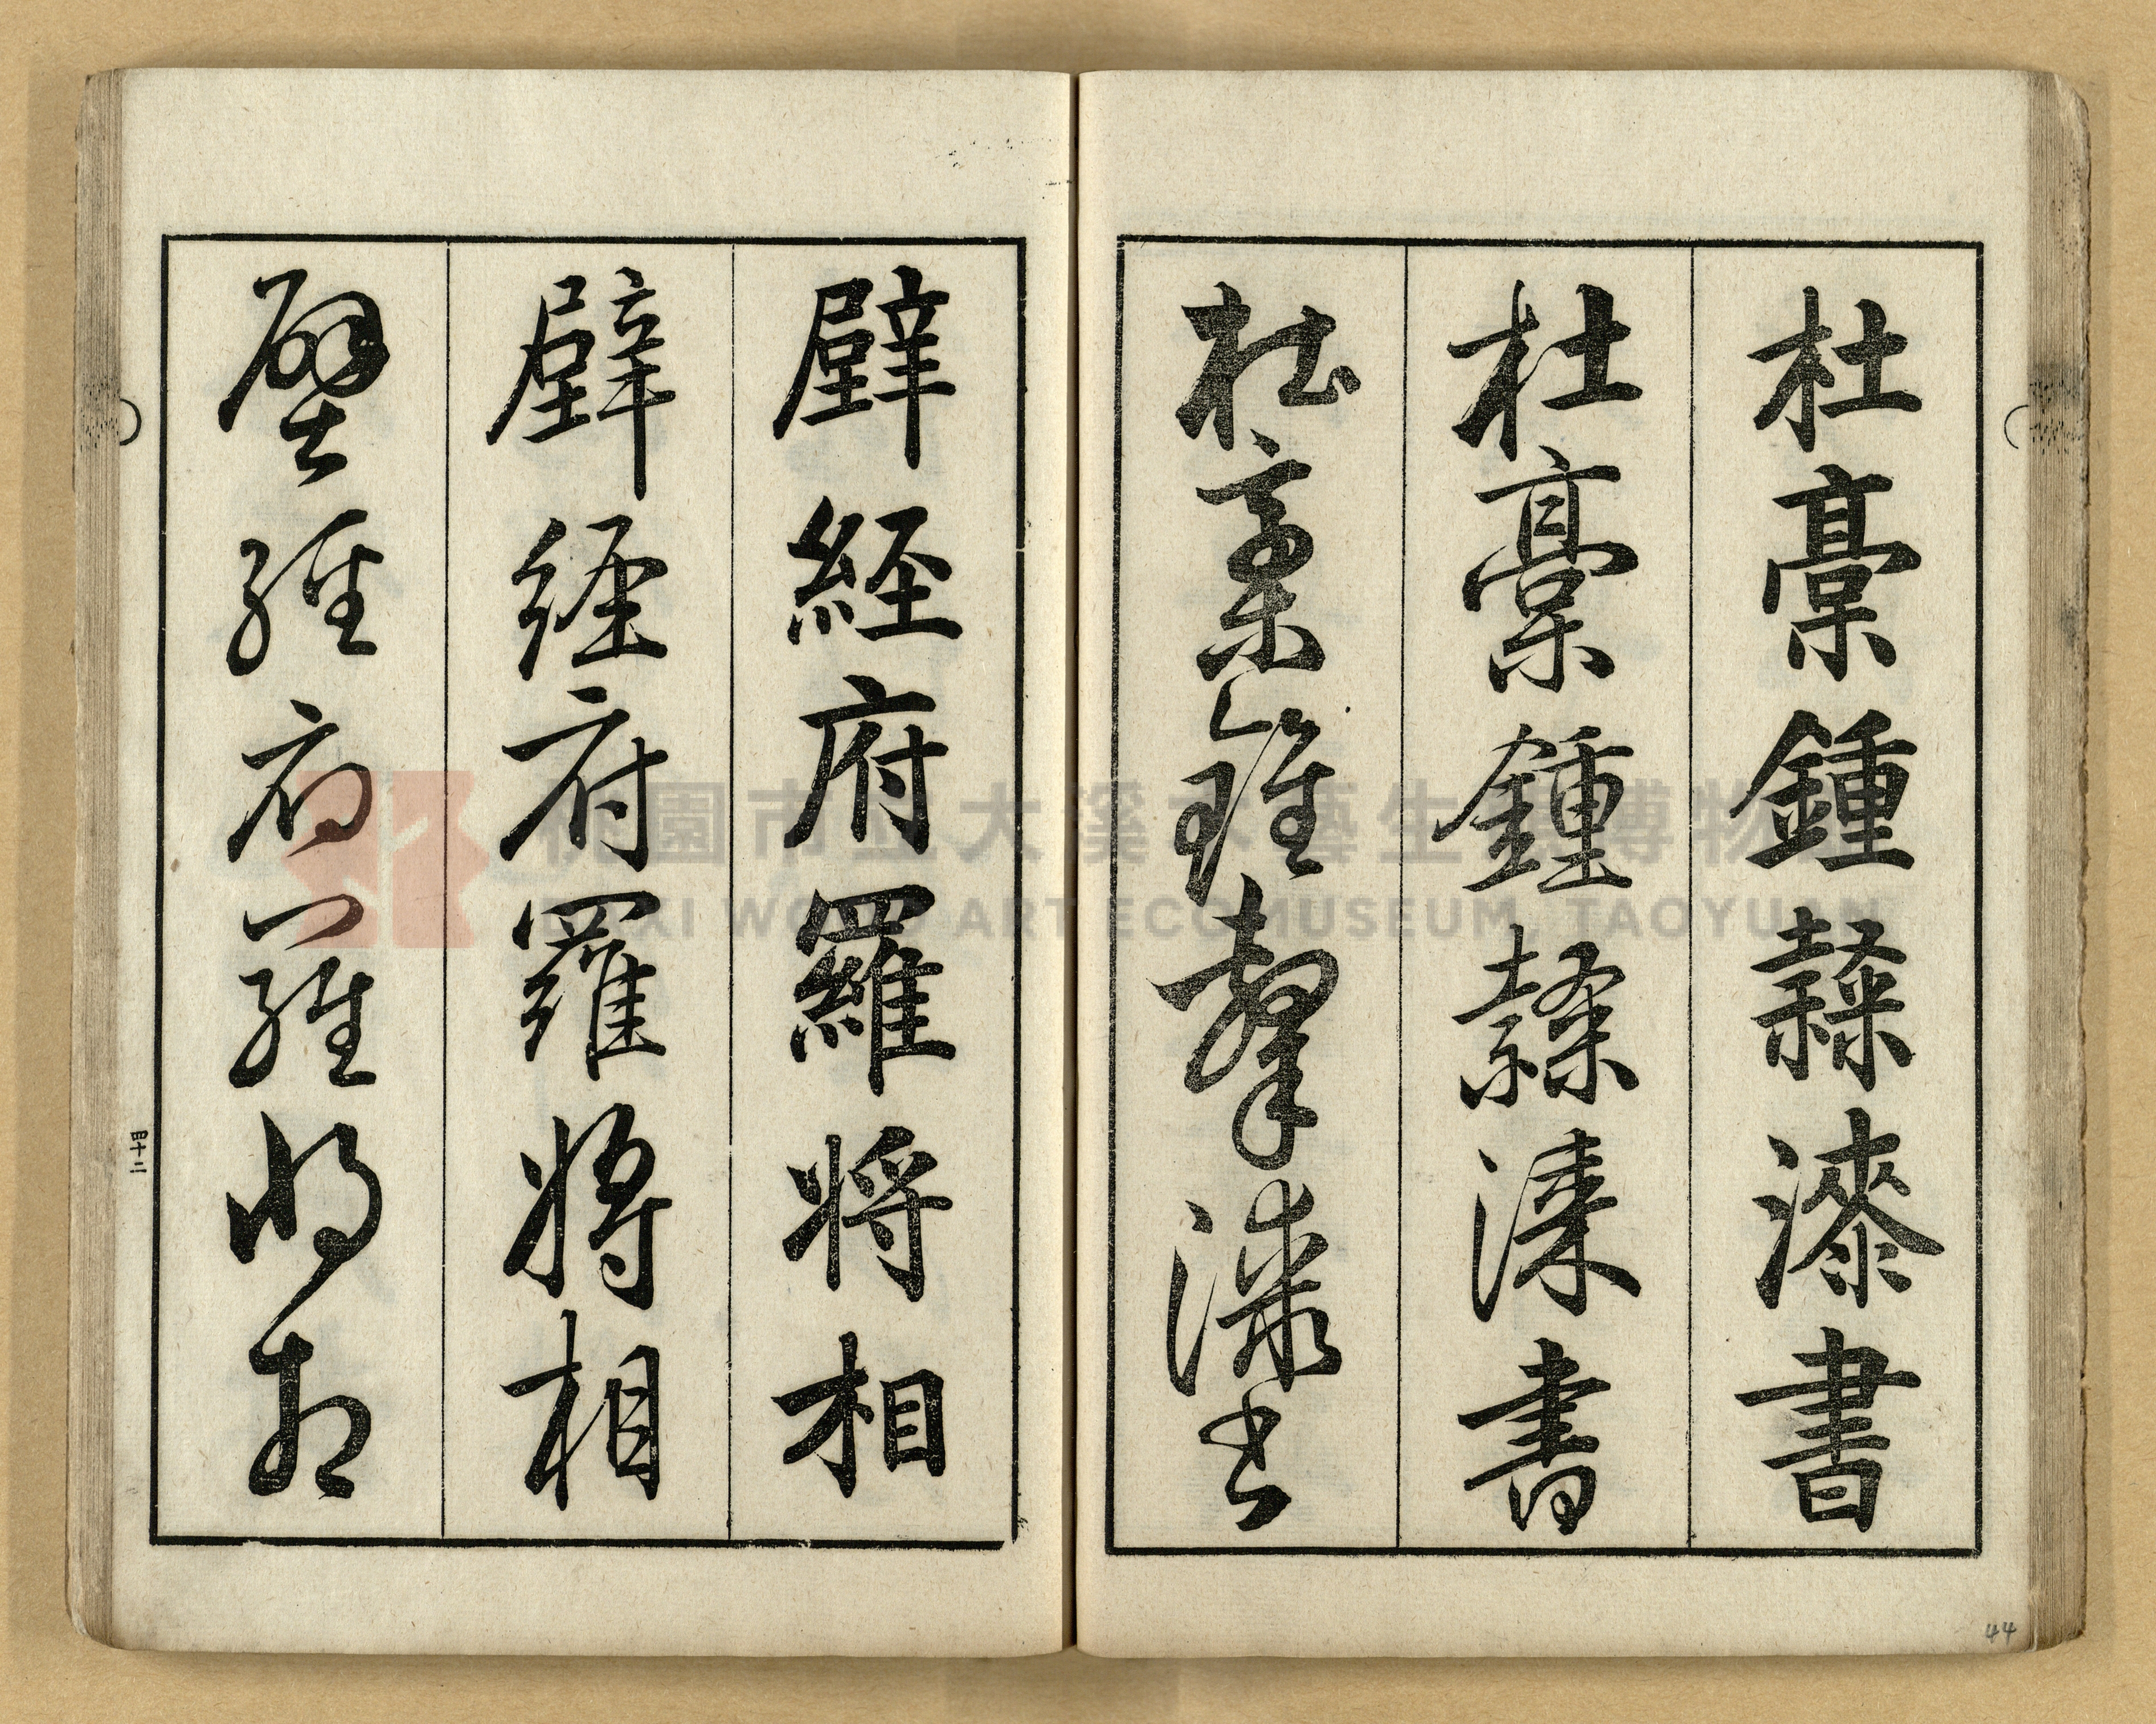 杜稾鍾隸漆書
杜稾鍾隸漆書
杜稾鍾隸漆書
壁經府羅將相
壁經府羅將相
壁經府羅將相
四十二
44
桃園市立大溪木藝生態博物館
DAXI WOOD ART ECOMUSEUM, TAOYUAN